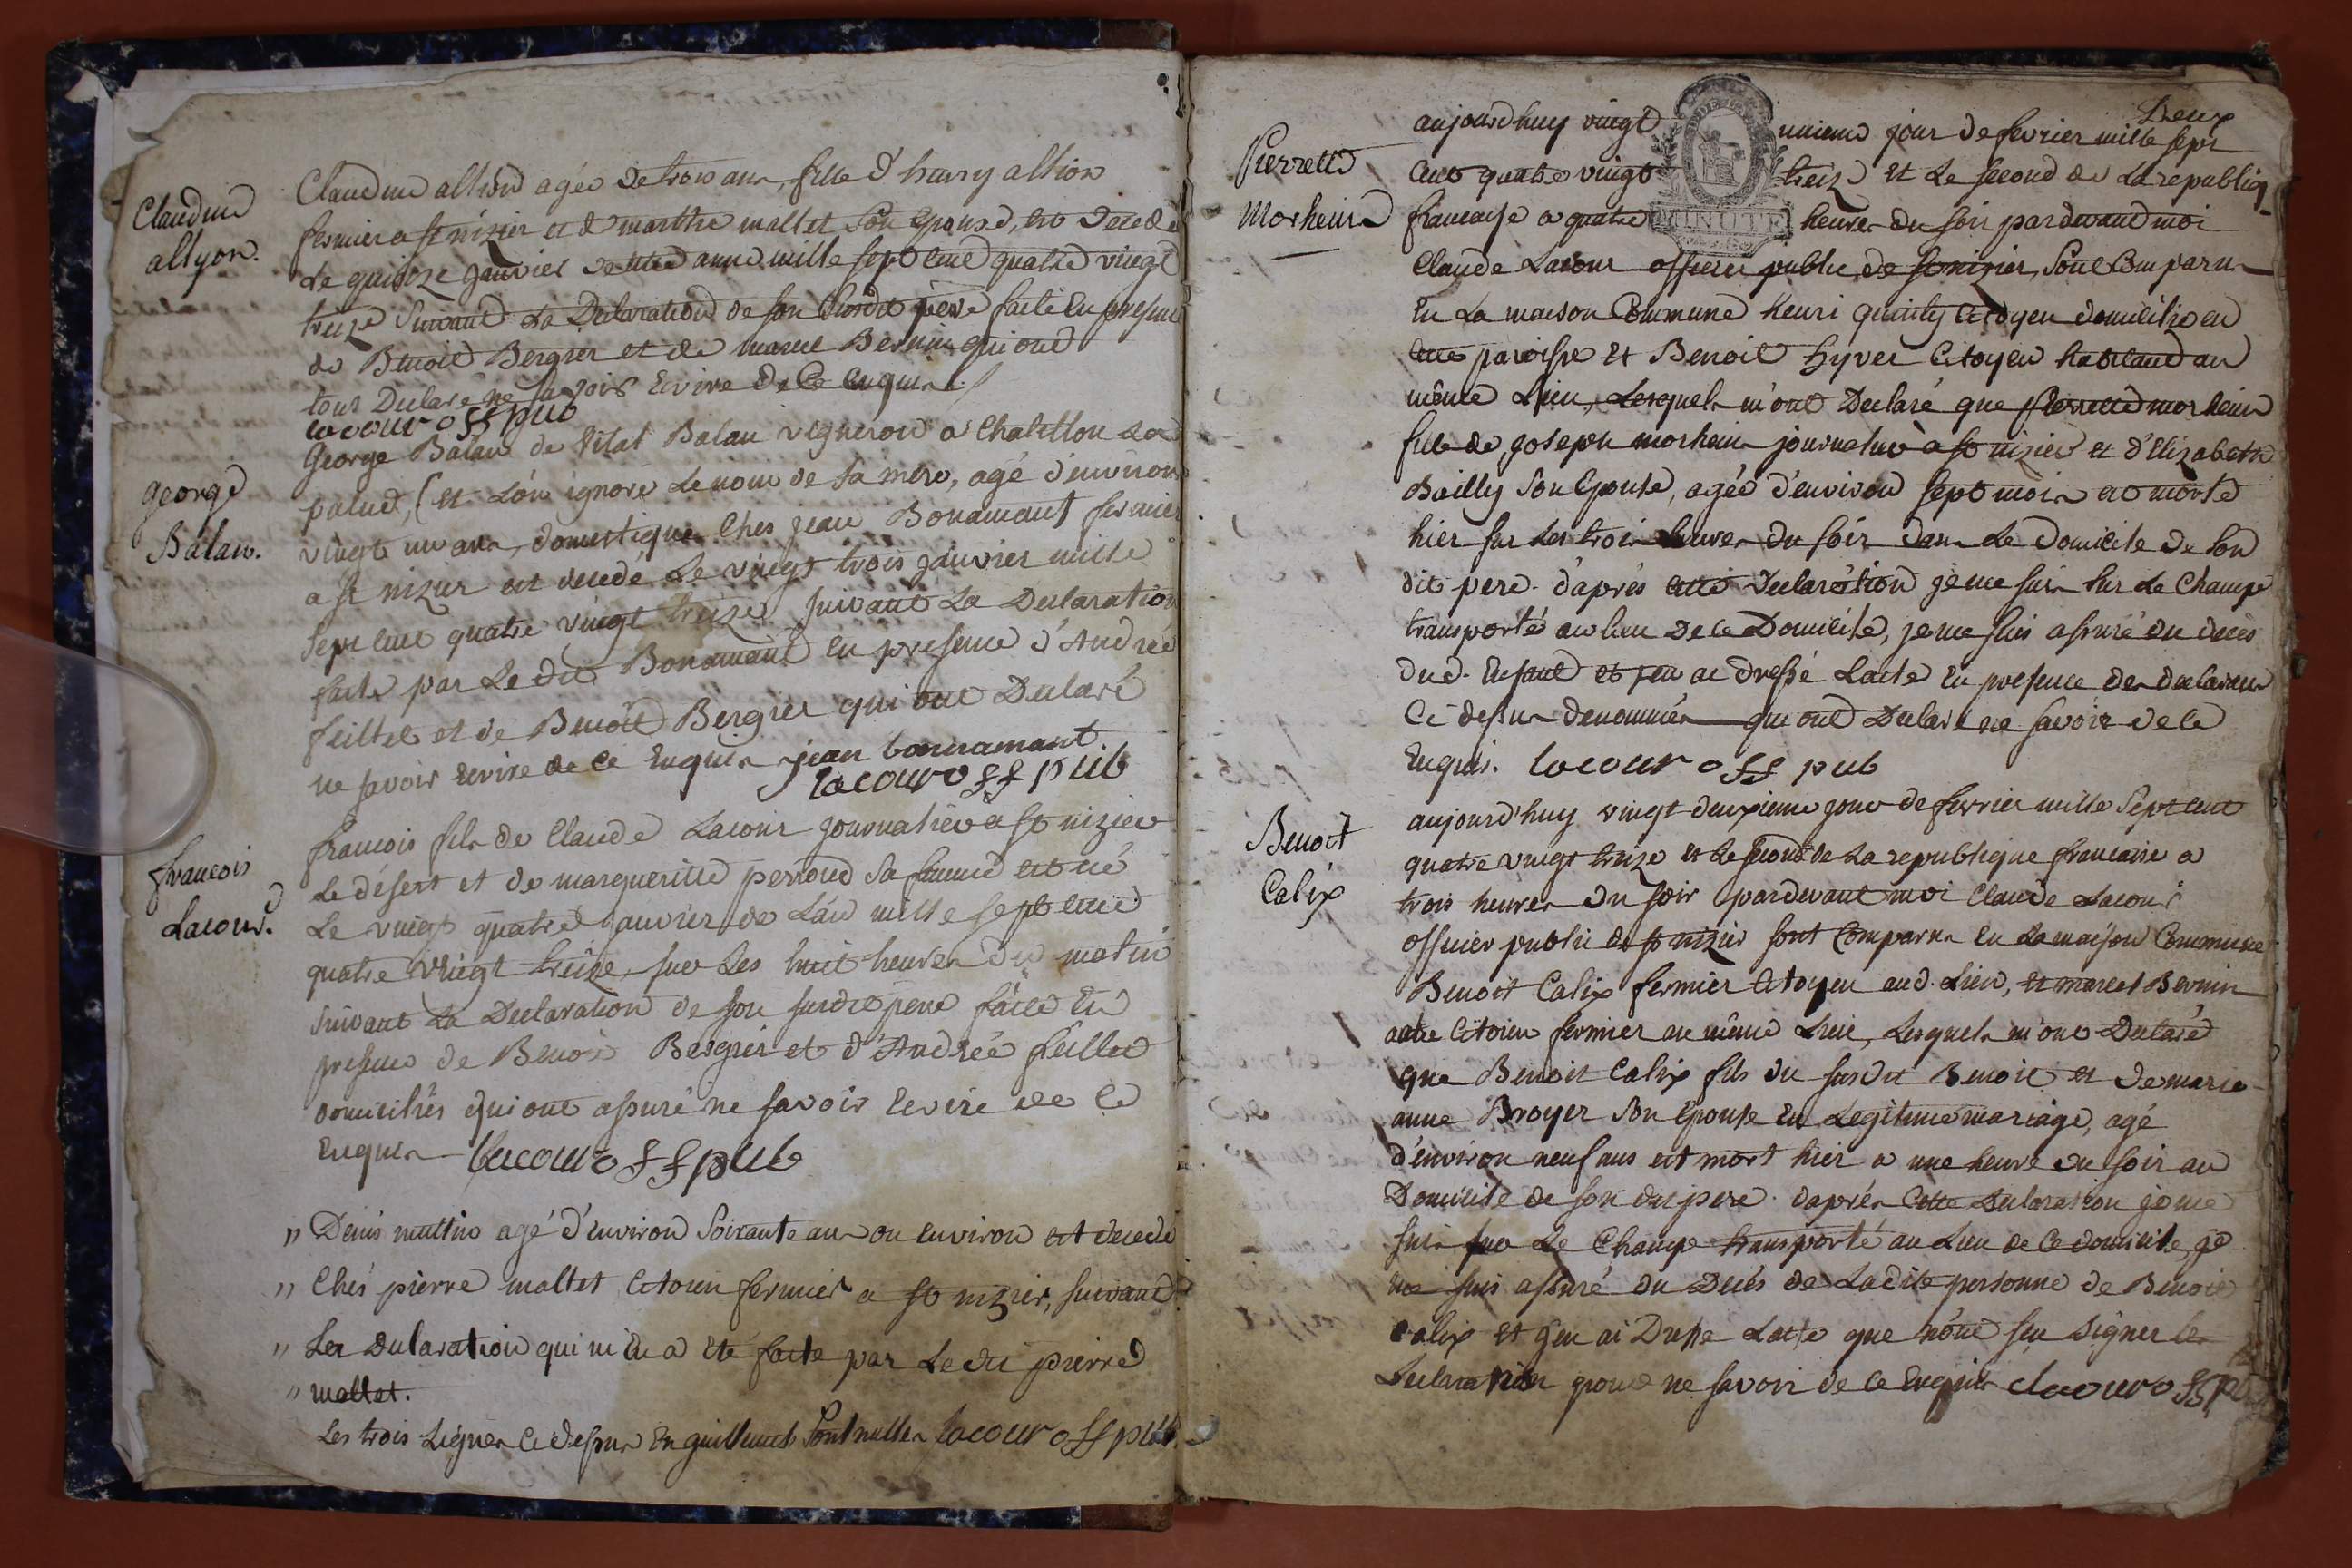 Claudine
altyon.
Claudine altion agée de trois ans, fille d'henry altion
fermier a st nizier et de marthe mallet son epouse, est decedé
Le quinze janvier de cette anné mille sept cent quatre vingt
treize suivant La Declaration de son susdit pere faite En presence
de Benoit Bergier et de marcel Bernin qui ont
tous Declaré ne savoir Ecrire De Ce Enquis
lacour off pub
George
Balan.
George Balan de Vital Balan vigneron a Chatillon La
palud, (et L'on ignore Le nom de sa mere, agé d'environ
vingt un ans, domestique Ches jean Bonamant fermier
a st nizier est decedé Le vingt trois janvier mille
sept cent quatre vingt treize suivant La Declaration
faite par Le dit Bonamant En presence d'Andréé
feillet et de Benoit Bergier qui ont Declaré
ne savoir Ecrire de Ce Enquis jean bonnamant
lacour off pub
francois
Lacour.
francois fils de Claude Lacour journalier a st nizier
Le désert et de margueritte perroud sa femme est né
Le vingt quatre janvier de L'an mille sept cent
quatre vingt treize sur Les huit heures du matin
suivant La Declaration de son susdit pere faite En
presence de Benoit Bergier et d'Andréé feillet
domiciliés qui ont assuré ne savoir Ecrire de Ce
Enquis lacour off pub
" Denis muttin agé d'environ Soixante ans ou Environ est decedé
" Chés pierre mallet Citoien fermier a st nizier, suivant
" La Declaration qui m'en a Eté faite par Le dit pierre
" mallet.
Les trois Lignes Ci dessus En guillemets Sont nulles lacour off pub
Deux
Pierrette
Morheins
aujourd'huy vingt unieme jour de fevrier mille sept
MINUTE
Cent quatre vingt treize Et Le second de La republiq
francaise a quatre heures du soir pardevant moi
Claude Lacour officier public de st nizier, Sont Comparus
En La maison Commune henri quinty Citoyen domicilié en
cette paroisse Et Benoit hyver Citoyen habitant au
même Lieu, Lesquels m'ont Declaré que pierrette morheins
fille de joseph morheins journalier à st nizier et d'Elizabeth
Bailly Son Epouse, agée d'environ sept mois est morte
hier sur Les trois heures du soir dans Le domicile de Son
dit pere. d'aprés cette declaration je me suis sur Le Champ
transporté au lieu De Ce Domicile, je me suis assuré du deces
dud. Enfant et j'en ai dressé L'acte En presence des declarans
Ci dessus denommés qui ont Declaré ne savoir de Ce
Enquis. lacour off pub
Benoit
Calix
aujourd'huy vingt deuxieme jour de fevrier mille Sept cent
quatre vingt treize et Le second de La republique francaise a
trois heures du soir pardevant moi Claude Lacour
officier public de st nizier sont Comparus En La maison Commune
Benoit Calix fermier Citoyen aud. Lieu, et marcel Bernin
autre Citoien fermier au même Lieu, Lesquels m'ont Declaré
que Benoit Calix fils du susdit Benoit et de marie
anne Broyer Son Epouse En Legitime mariage, agé
d'environ neuf ans est mort hier a une heure du soir au
Domicile de son dit pere. d'aprés Cette declaration je me
suis sur Le Champ transporté au Lieu de Ce domicile, je
me suis assuré du Decés de Ladite personne de Benoit
Calix et j'en ai Dressé L'acte que n'ont seu signer les
Declarans pour ne savoir de Ce Enquis Lacour off pub